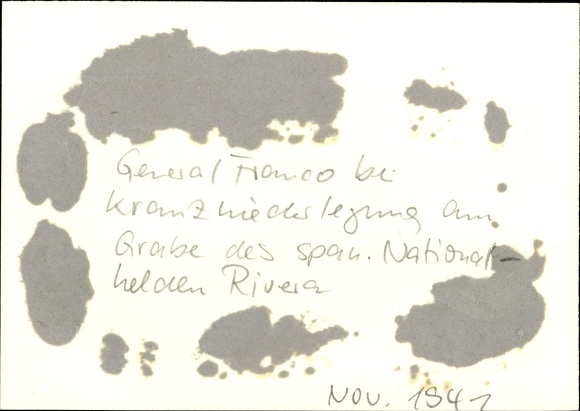 General Franco bei
Kranzniederlegung am
Grabe des span. National-
helden Rivera
Nov. 1941